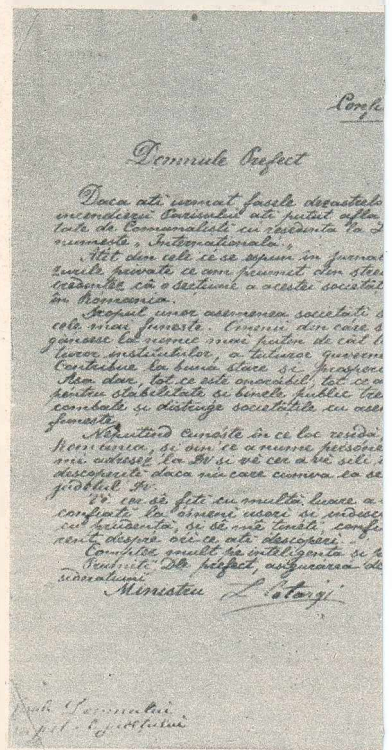 Confi
Domnule Prefect
Daca ati urmat fasele dezastrelo
incendierii Parisului ati putut afla
tate de Comunalisti cu residenta la
numeste „Internationala”
Atit din cele ce se espun in jurna
zurile private ce am preumit din stre
credintez că o sectiune a acestei societat
in Romania.
Scopul unor asemenea societati
cele mai funeste. Omenii din care s
gandesc la nemic mai putin de cat l
turor institutilor, a tuturor guverne
Contribue la buna stare si prospere
Asa dar, tot ce este onorabil, tot ce a
pentru stabilitate si binele public tre
combate si distruge societatile cu ase
funeste.
Neputind cunoste in ce loc resida
Romania, si din ce a nume persone
mi adresez la Dv si vĕ cer a vĕ sili
descoperiti daca nu care cumva la se
judetul Dv.
Vĕ cer sĕ fiti cu multa luare a
confiati la omeni usori si indisc
cu prudenta, si sĕ mĕ tineti confi
rent despre ori-ce ati descoperi
Comptez mult pe inteligenta si
Primiti Dle prefect, asigurarea de
sideratiuni
Ministru L Catargi
Domnului
judetului